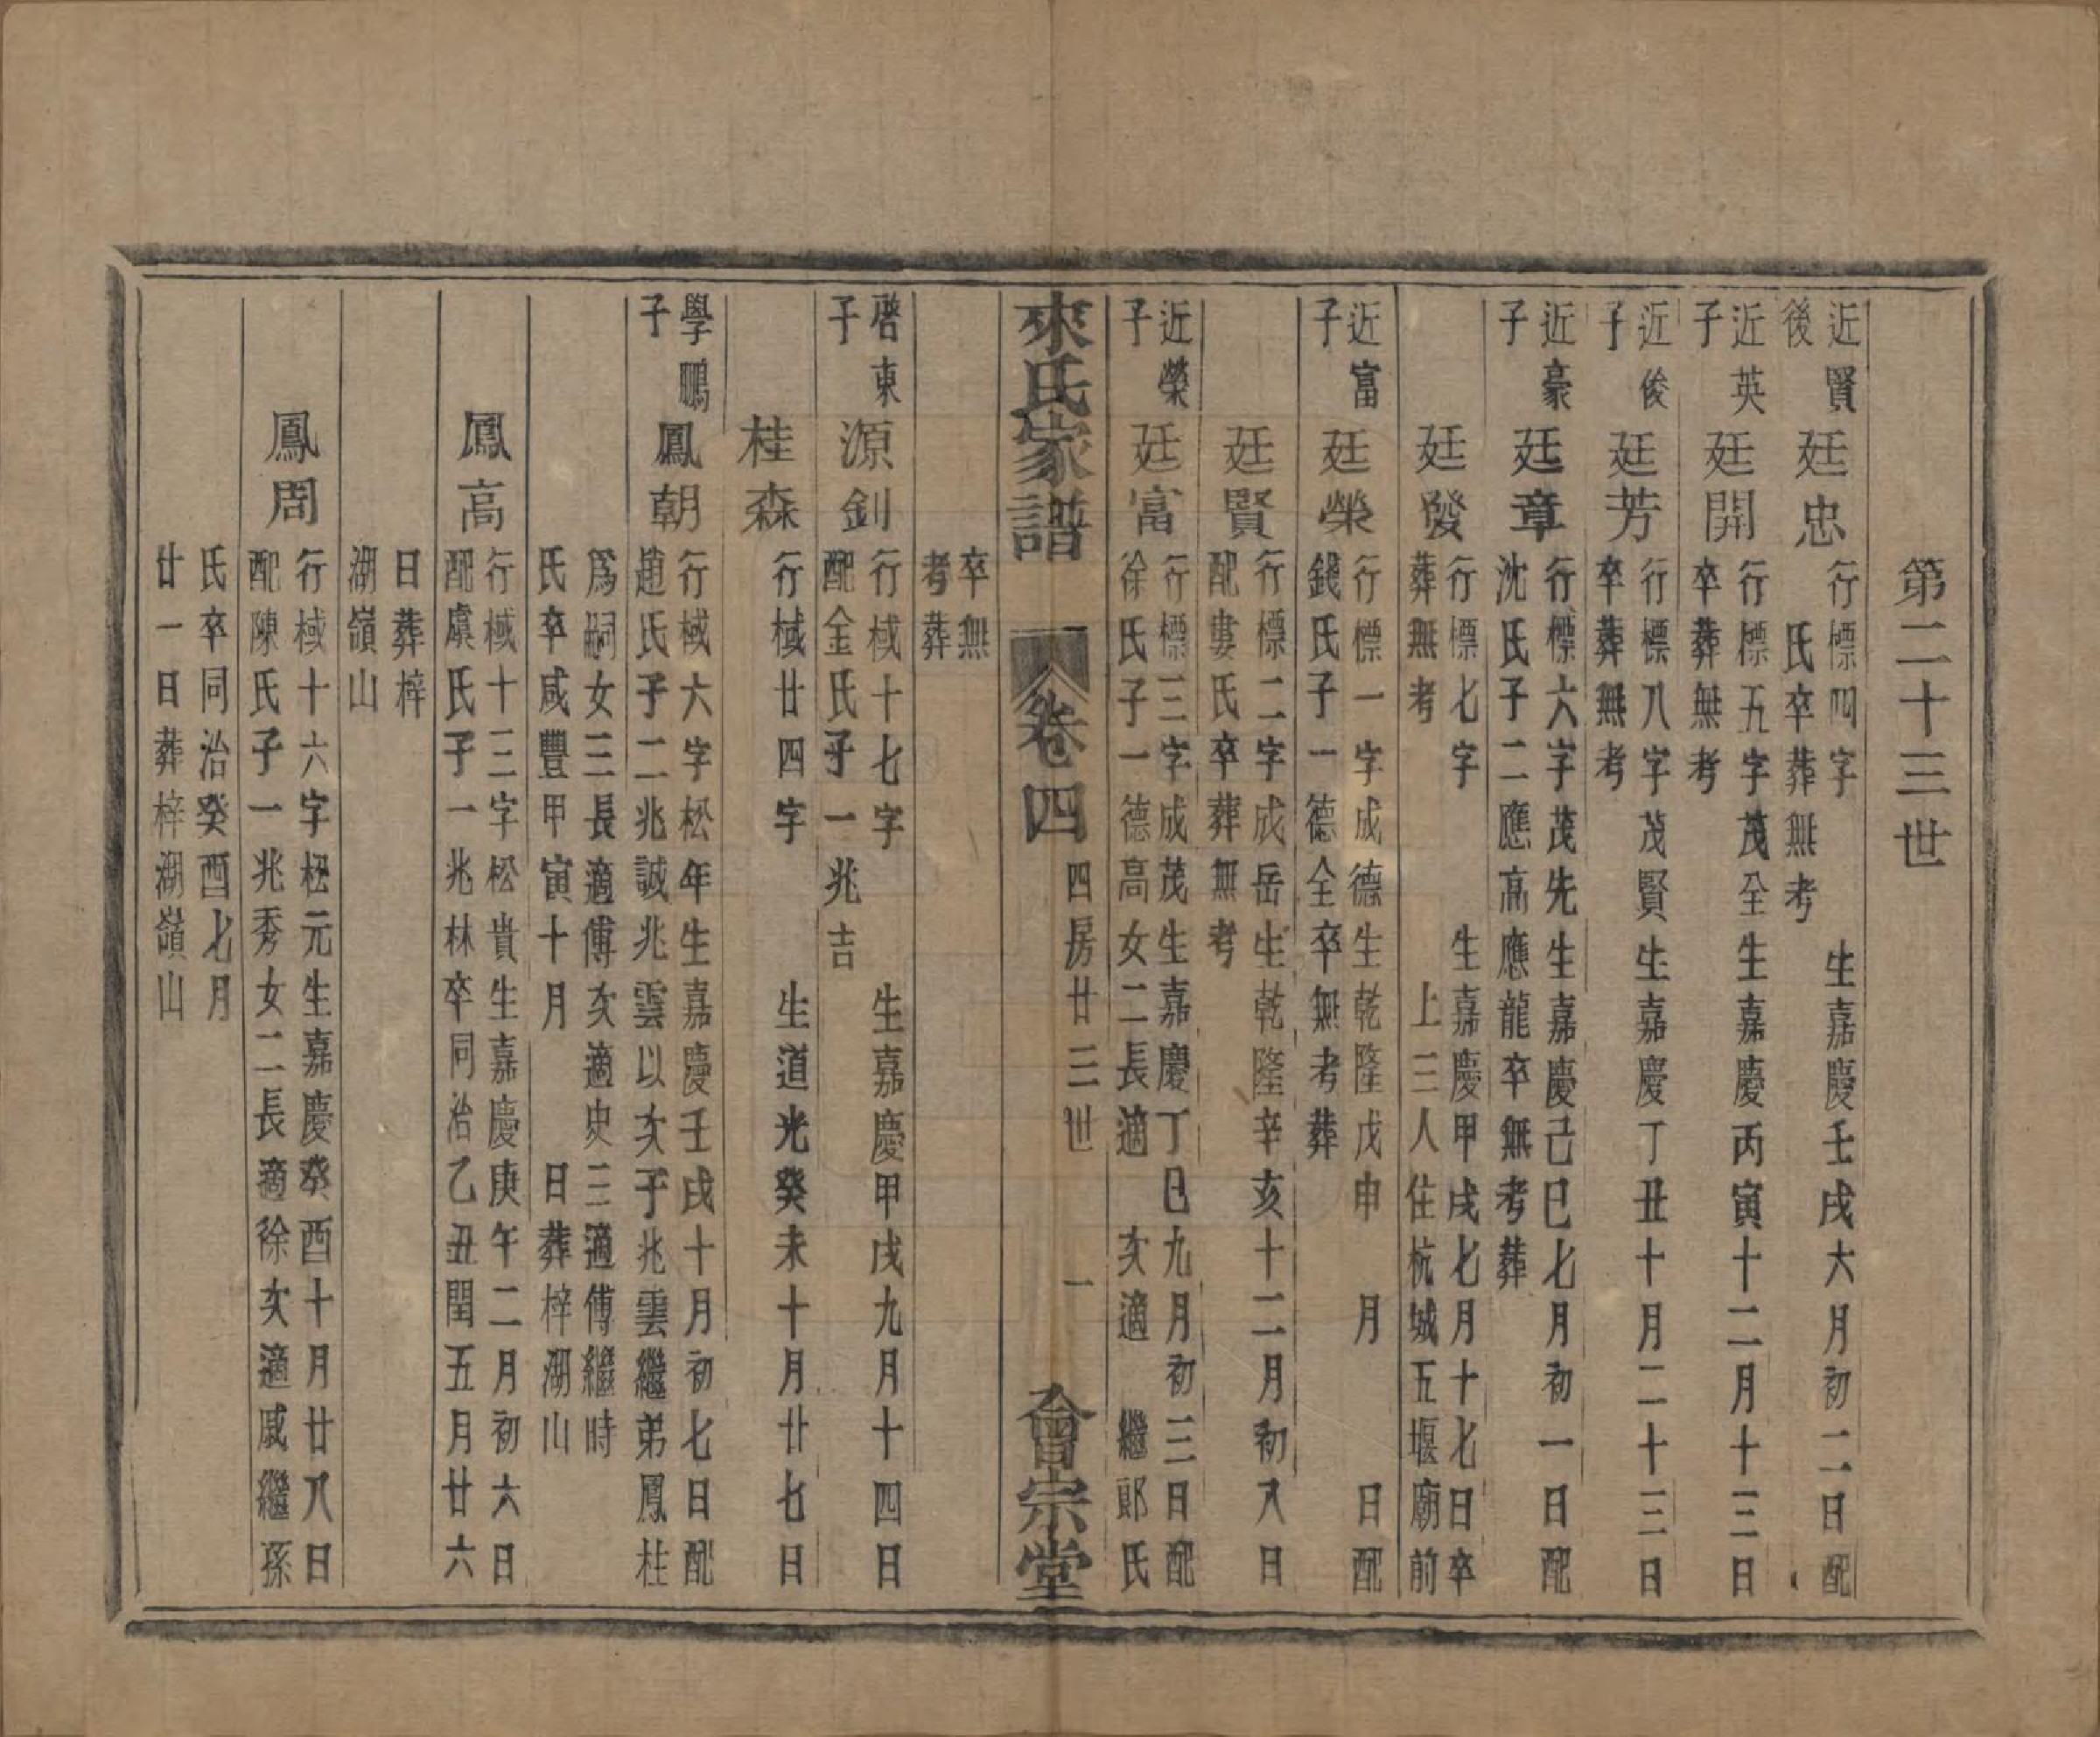 第二十三世
近賢後
廷忠
行標四字　　生嘉慶壬戌六月初二日配
氏卒葬無考
近英子
廷開
行標五字茂全生嘉慶丙寅十二月十三日
卒葬無考
近俊子
廷芳
行標八字茂賢生嘉慶丁丑十月二十三日
卒葬無考
近豪子
廷章
行標六字茂先生嘉慶己巳七月初一日配
沈氏子二應高應龍卒無考葬
廷發
行標七字　　生嘉慶甲戌七月十七日卒
葬無考　　　　上三人住杭城五堰廟前
近富子
廷榮
行標一字成德生乾隆戊申　月　　日配
錢氏子一德全卒無考葬
廷賢
行標二字成岳生乾隆辛亥十二月初八日
配婁氏卒葬無考
近榮子
廷富
行標三字成茂生嘉慶丁巳九月初三日配
徐氏子一德高女二長適　次適　繼郎氏
來氏家譜　卷四　四房廿三世　一　會宗堂
卒無
考葬
啓東子
源釗
行棫十七字　　生嘉慶甲戌九月十四日
配金氏子一兆吉
桂森
行棫廿四字　　生道光癸未十月廿七日
學鵬子
鳳朝
行棫六字松年生嘉慶壬戌十月初七日配
趙氏子二兆誠兆雲以次子兆雲繼弟鳳柱
爲嗣女三長適傅次適史三適傅繼時
氏卒咸豐甲寅十月　　日葬梓湖山
鳳高
行棫十三字松貴生嘉慶庚午二月初六日
配虞氏子一兆林卒同治乙丑閏五月廿六
日葬梓
湖嶺山
鳳周
行棫十六字松元生嘉慶癸酉十月廿八日
配陳氏子一兆秀女二長適徐次適戚繼孫
氏卒同治癸酉七月
廿一日葬梓湖嶺山